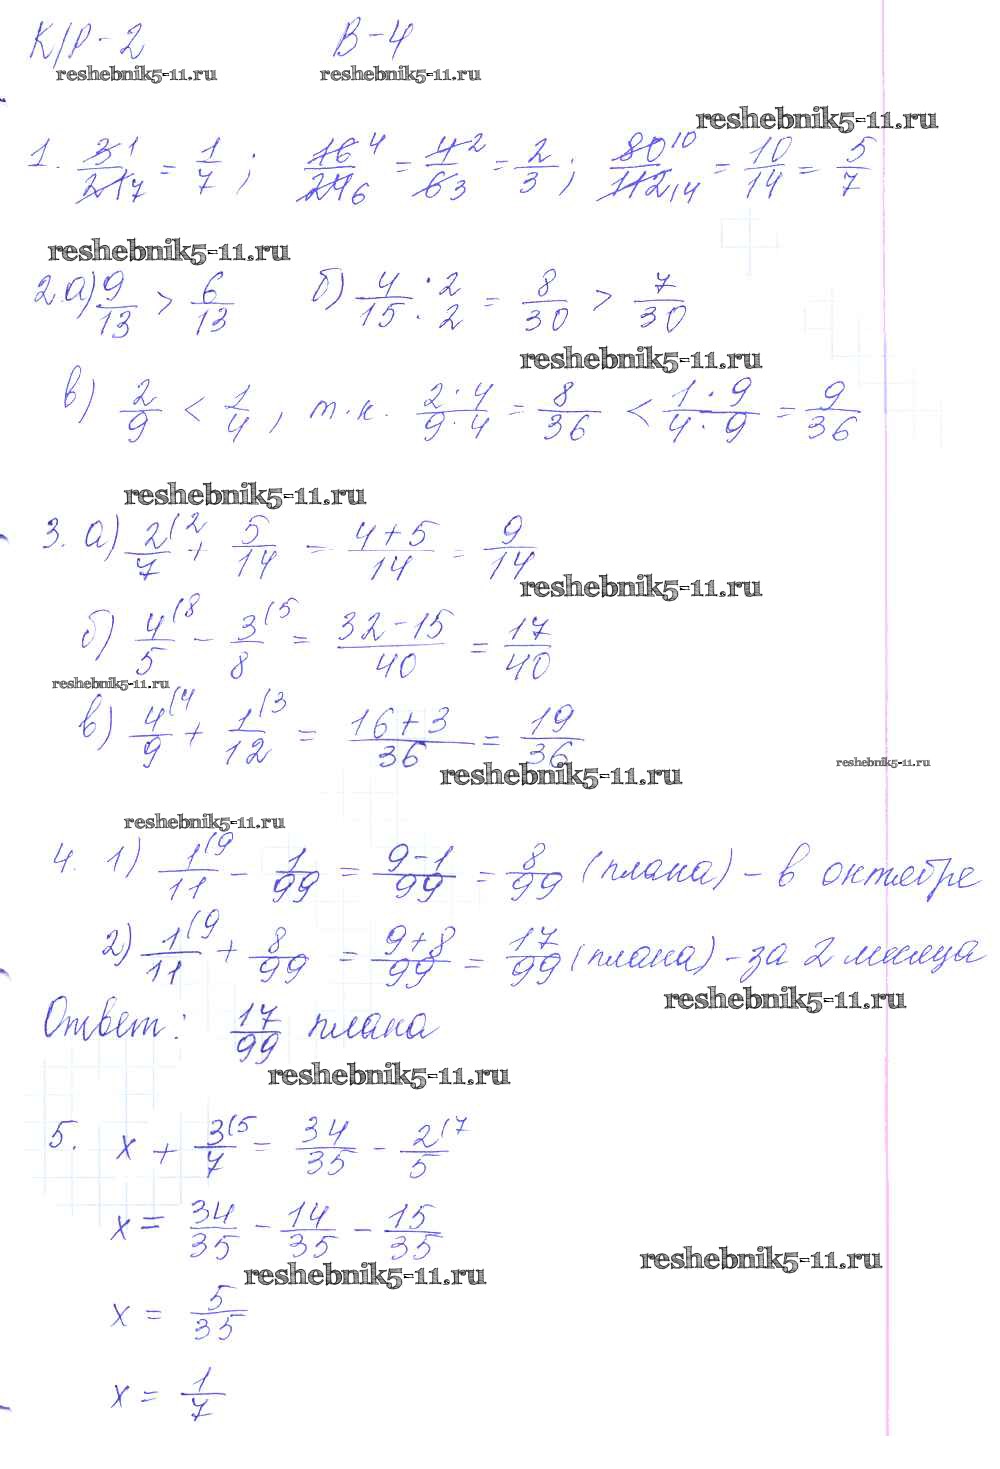 К/Р-2 В-4
reshebnik5-11.ru reshebnik5-11.ru
reshebnik5-11.ru
1. 3 1/21 7 = 1/7 ; 16 4/24 6 = 4 2/6 3 = 2/3 ; 80 10/112 14 = 10/14 = 5/7
reshebnik5-11.ru
2.а) 9/13 > 6/13 б) 4·2/15·2 = 8/30 > 7/30
reshebnik5-11.ru
в) 2/9 < 1/4 , т.к. 2·4/9·4 = 8/36 < 1·9/4·9 = 9/36
reshebnik5-11.ru
3. а) 2(2/7 + 5/14 = 4+5/14 = 9/14
reshebnik5-11.ru
б) 4(8/5 - 3(5/8 = 32-15/40 = 17/40
reshebnik5-11.ru
в) 4(4/9 + 1(3/12 = 16+3/36 = 19/36
reshebnik5-11.ru
reshebnik5-11.ru
reshebnik5-11.ru
4. 1) 1(9/11 - 1/99 = 9-1/99 = 8/99 (плана) - в октябре
2) 1(9/11 + 8/99 = 9+8/99 = 17/99 (плана) - за 2 месяца
reshebnik5-11.ru
Ответ: 17/99 плана
reshebnik5-11.ru
5. x + 3(5/7 = 34/35 - 2(7/5
x = 34/35 - 14/35 - 15/35
reshebnik5-11.ru
reshebnik5-11.ru
x = 5/35
x = 1/7